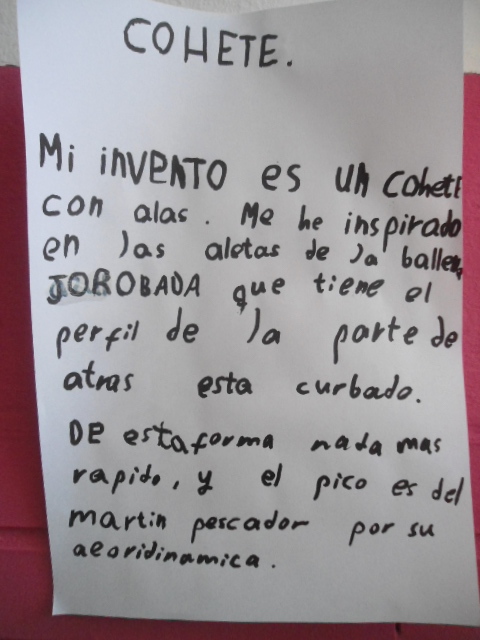 COHETE.
Mi iNVENTO es UN cohete
con alas. Me he inspirado
en las aletas de la ballena
JOROBADA que tiene el
perfil de la parte de
atras esta curbado.
DE estaforma nada mas
rapido, y el pico es del
martin pescador por su
aeoridinamica.